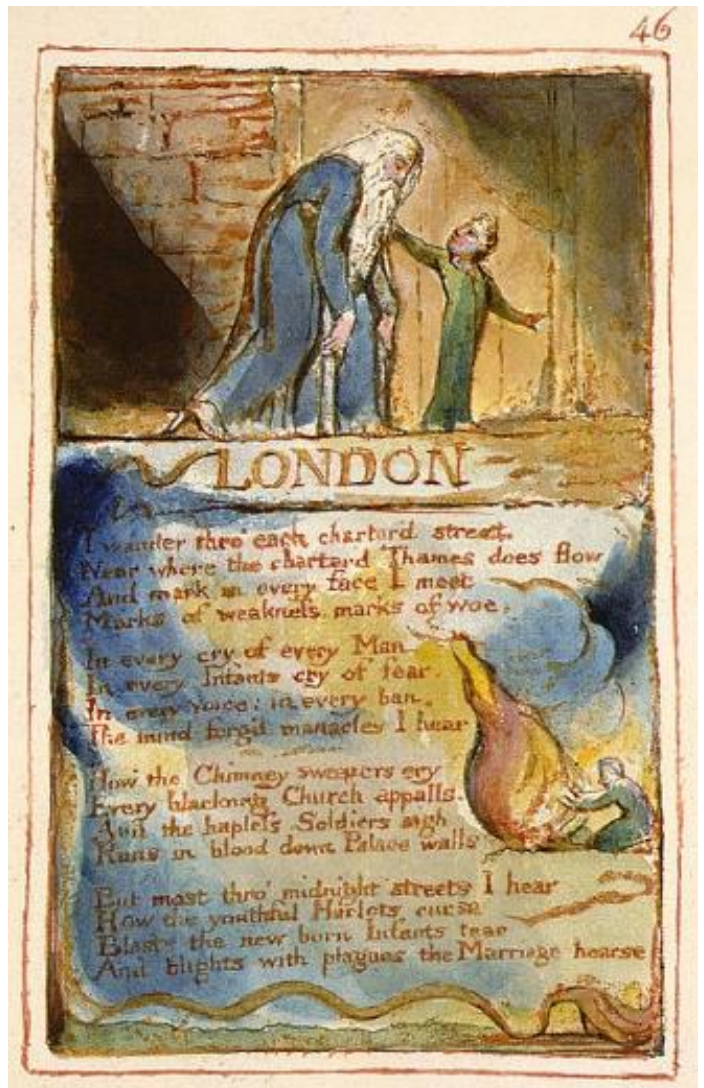 46
LONDON
I wander thro' each charter'd street.
Near where the charter'd Thames does flow
And mark in every face I meet
Marks of weakness, marks of woe.
In every cry of every Man
In every Infants cry of fear.
In every voice: in every ban.
The mind forg'd manacles I hear
How the Chimney sweepers cry
Every blackning Church appalls.
And the hapless Soldiers sigh
Runs in blood down Palace walls
But most thro' midnight streets I hear
How the youthful Harlots curse
Blasts the new born Infants tear
And blights with plagues the Marriage hearse